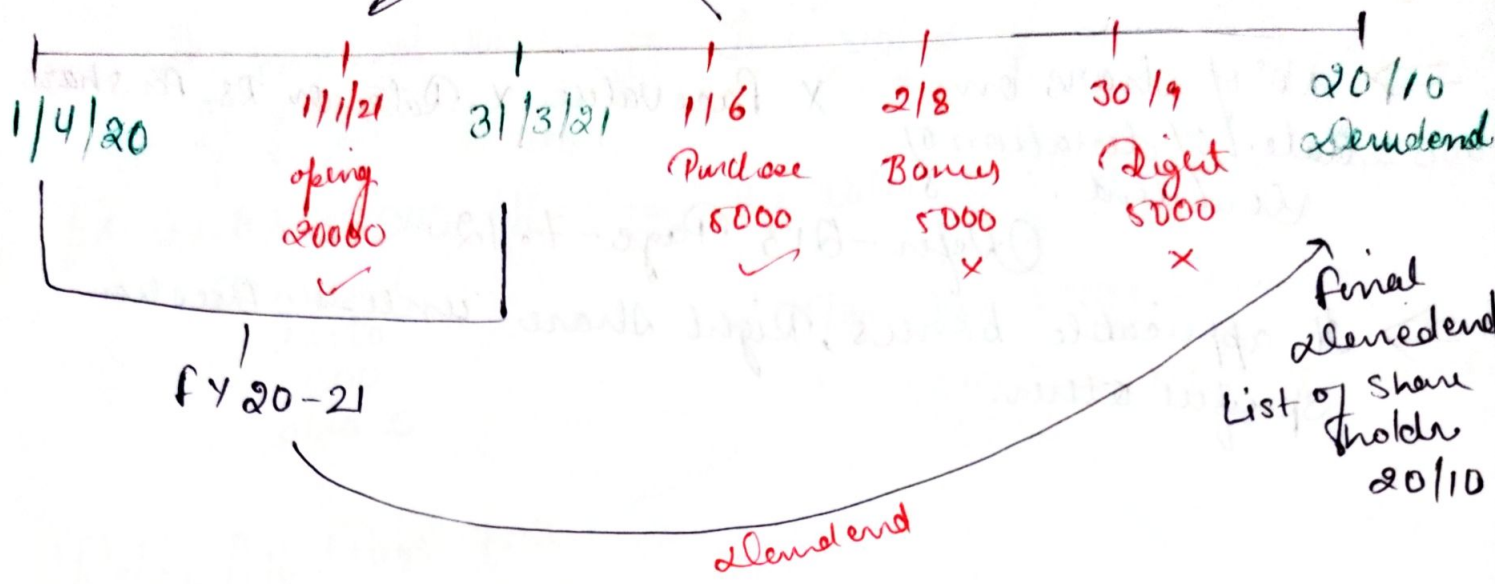 1/4/20
1/1/21
opeing
20000
✓
31/3/21
1/6
Purchase
5000
✓
2/8
Bonus
5000
×
30/9
Right
5000
×
20/10
Dividend
FY 20-21
Dividend
Final
Dividend
List of Share
holder
20/10